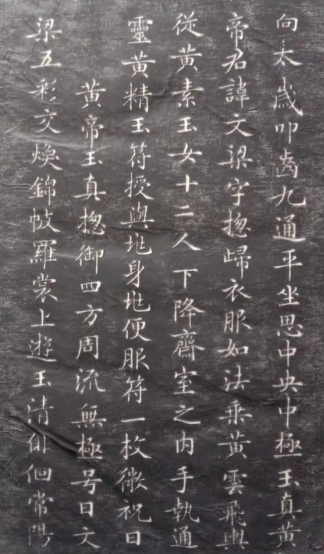 向太歲叩齒九通平坐思中央中極玉真黃
帝君諱文梁字揔歸衣服如法乘黃雲飛輿
從黃素玉女十二人下降齋室之内手執通
靈黃精玉符授與地身地便服符一枚微祝曰
黃帝玉真揔御四方周流無極号曰文
梁五彩交煥錦帔羅裳上遊玉清俳佪常陽